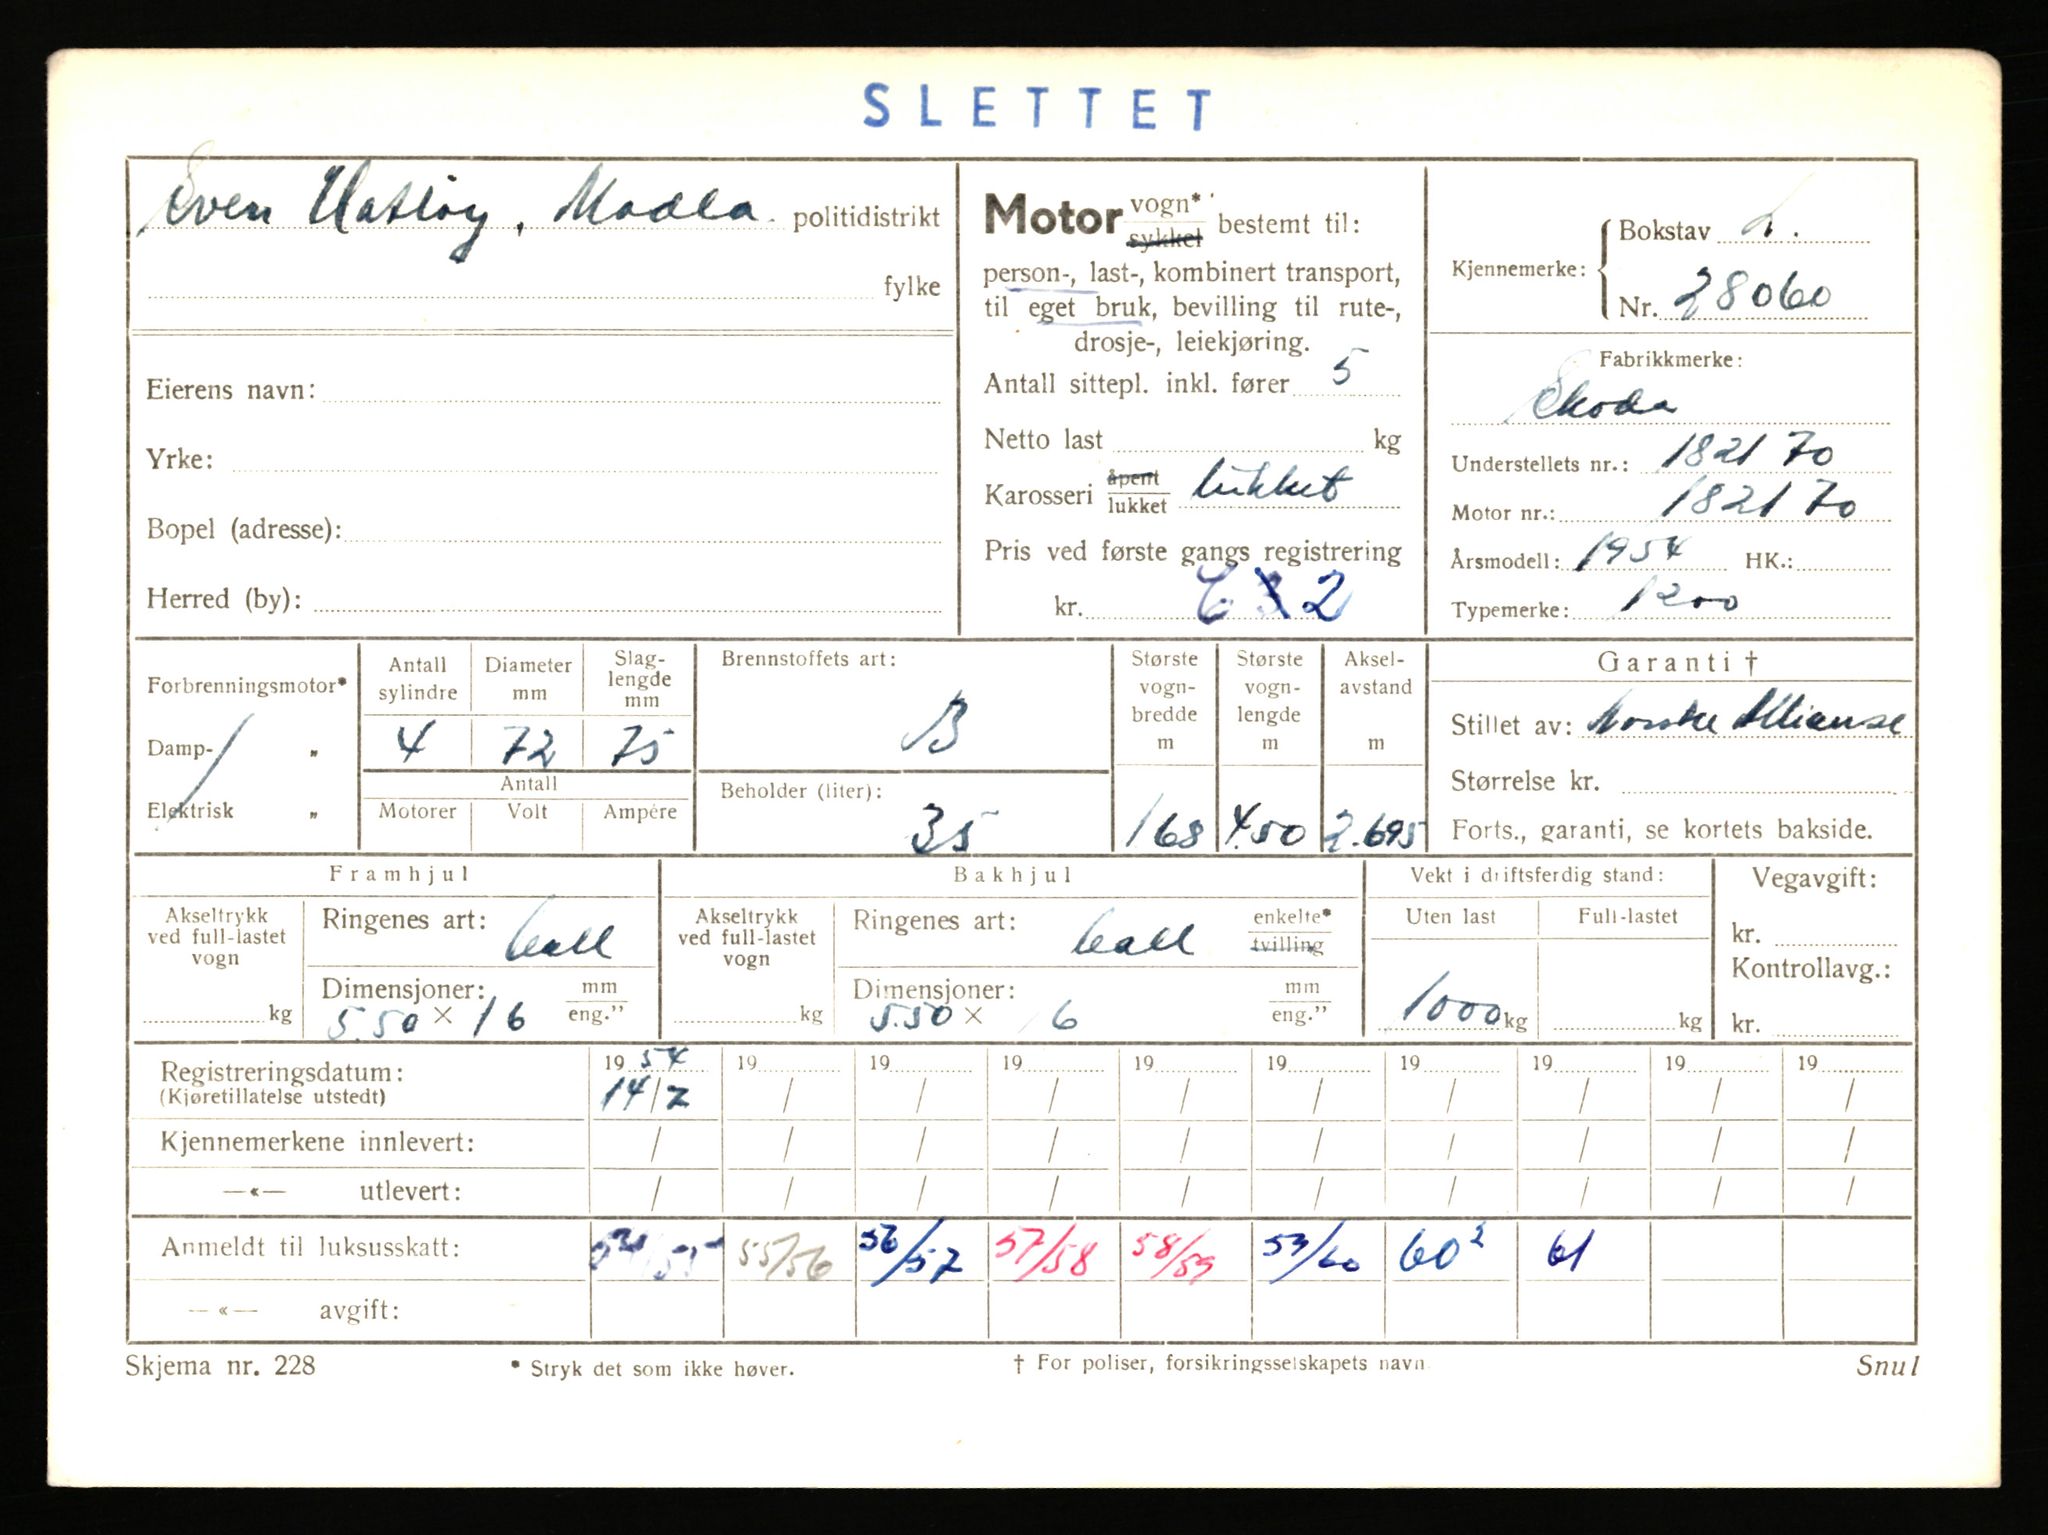 SLETTET
Even Hatløy, Madla. politidistrikt
fylke
Eierens navn:
Yrke:
Bopel (adresse):
Herred (by):
Motor vogn* sykkel bestemt til:
person-, last-, kombinert transport,
til eget bruk, bevilling til rute-,
drosje-, leiekjøring.
Antall sittepl. inkl. fører 5
Netto last kg
Karosseri åpent lukket lukket
Pris ved første gangs registrering
kr. 2
Kjennemerke: Bokstav L.
Nr. 28060
Fabrikkmerke:
Skoda
Understellets nr.: 182170
Motor nr.: 182170
Årsmodell: 1954 HK.:
Typemerke: 1200
Forbrenningsmotor*
Damp- "
Elektrisk "
Antall sylindre Diameter mm Slag-lengde mm
4 72 75
Antall
Motorer Volt Ampére
Brennstoffets art:
B
Beholder (liter):
35
Største vogn-bredde m Største vogn-lengde m Aksel-avstand m
1.68 4.50 2.695
Garanti †
Stillet av: Norske Allianse
Størrelse kr.
Forts., garanti, se kortets bakside.
Framhjul
Akseltrykk ved full-lastet vogn
kg
Ringenes art:
Dimensjoner: mm eng."
5.50 × 16
Bakhjul
Akseltrykk ved full-lastet vogn
kg
Ringenes art: enkelte* tvilling
Dimensjoner: mm eng."
5.50 × 16
Vekt i driftsferdig stand:
Uten last Full-lastet
1000 kg kg
Vegavgift:
kr.
Kontrollavg.:
kr.
Registreringsdatum: 19 54 19 19 19 19 19 19 19 19 19
(Kjøretillatelse utstedt) 14/7 / / / / / / / / /
Kjennemerkene innlevert: / / / / / / / / / /
—«— utlevert: / / / / / / / / / /
Anmeldt til luksusskatt: 54/55 55/56 56/57 57/58 58/59 59/60 60² 61
—«— avgift:
Skjema nr. 228 * Stryk det som ikke høver. † For poliser, forsikringsselskapets navn. Snul